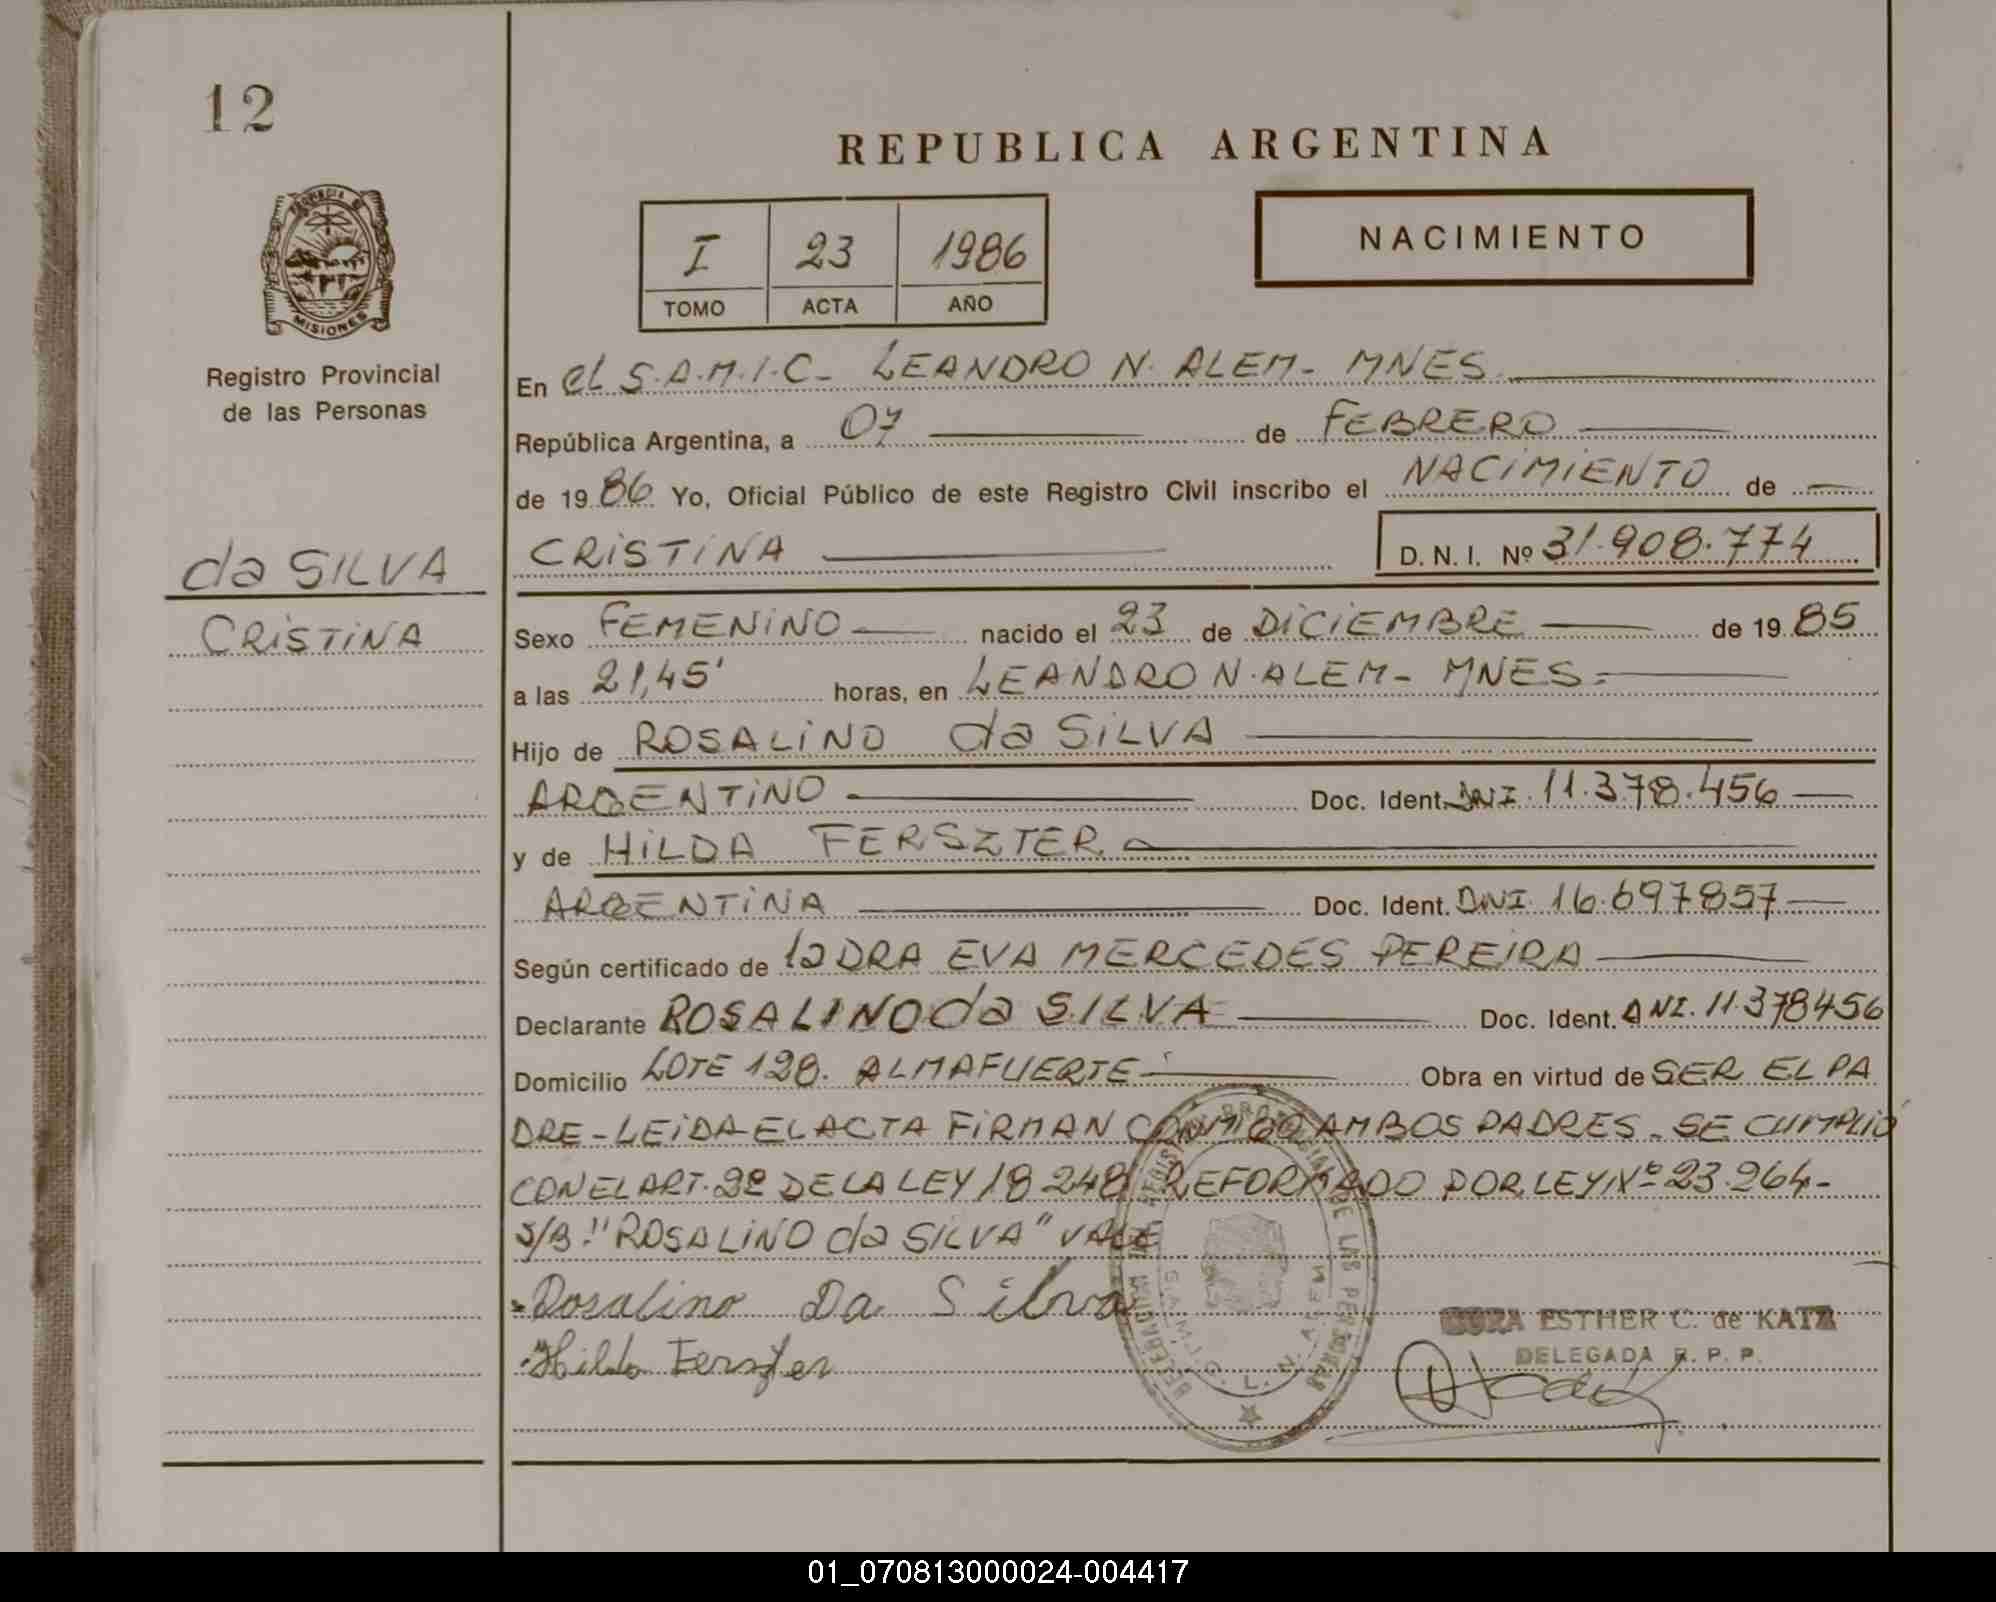 12
REPUBLICA ARGENTINA
I 23 1986
TOMO ACTA AÑO
NACIMIENTO
MISIONES
Registro Provincial
de las Personas
da SILVA
CRISTINA
En el S.A.M.I.C- LEANDRO N. ALEM- MNES.
República Argentina, a 07 de FEBRERO
de 1986 Yo, Oficial Público de este Registro Civil inscribo el NACIMIENTO de
CRISTINA D. N. I. Nº 31.908.774
Sexo FEMENINO nacido el 23 de DICIEMBRE de 1985
a las 21,45' horas, en LEANDRO N. ALEM- MNES.
Hijo de ROSALINO da SILVA
ARGENTINO Doc. Ident. DNI. 11.378.456
y de HILDA FERSZTER
ARGENTINA Doc. Ident. DNI. 16.697857
Según certificado de la DRA EVA MERCEDES PEREIRA
Declarante ROSALINO da SILVA Doc. Ident. DNI. 11.378456
Domicilio LOTE 128. ALMAFUERTE Obra en virtud de SER EL PA
DRE - LEIDA EL ACTA FIRMAN CONMIGO AMBOS PADRES. SE CUMPLIÓ
CON EL ART. 2º DE LA LEY 18.248 REFORMADO POR LEY Nº 23.264-
S/B: "ROSALINO da SILVA" VALE
Rosalino Da Silva
Hilda Ferszter
ESTHER C. de KATZ
DELEGADA R. P. P.
S.A.M.I.C. L. N. ALEM
01_070813000024-004417